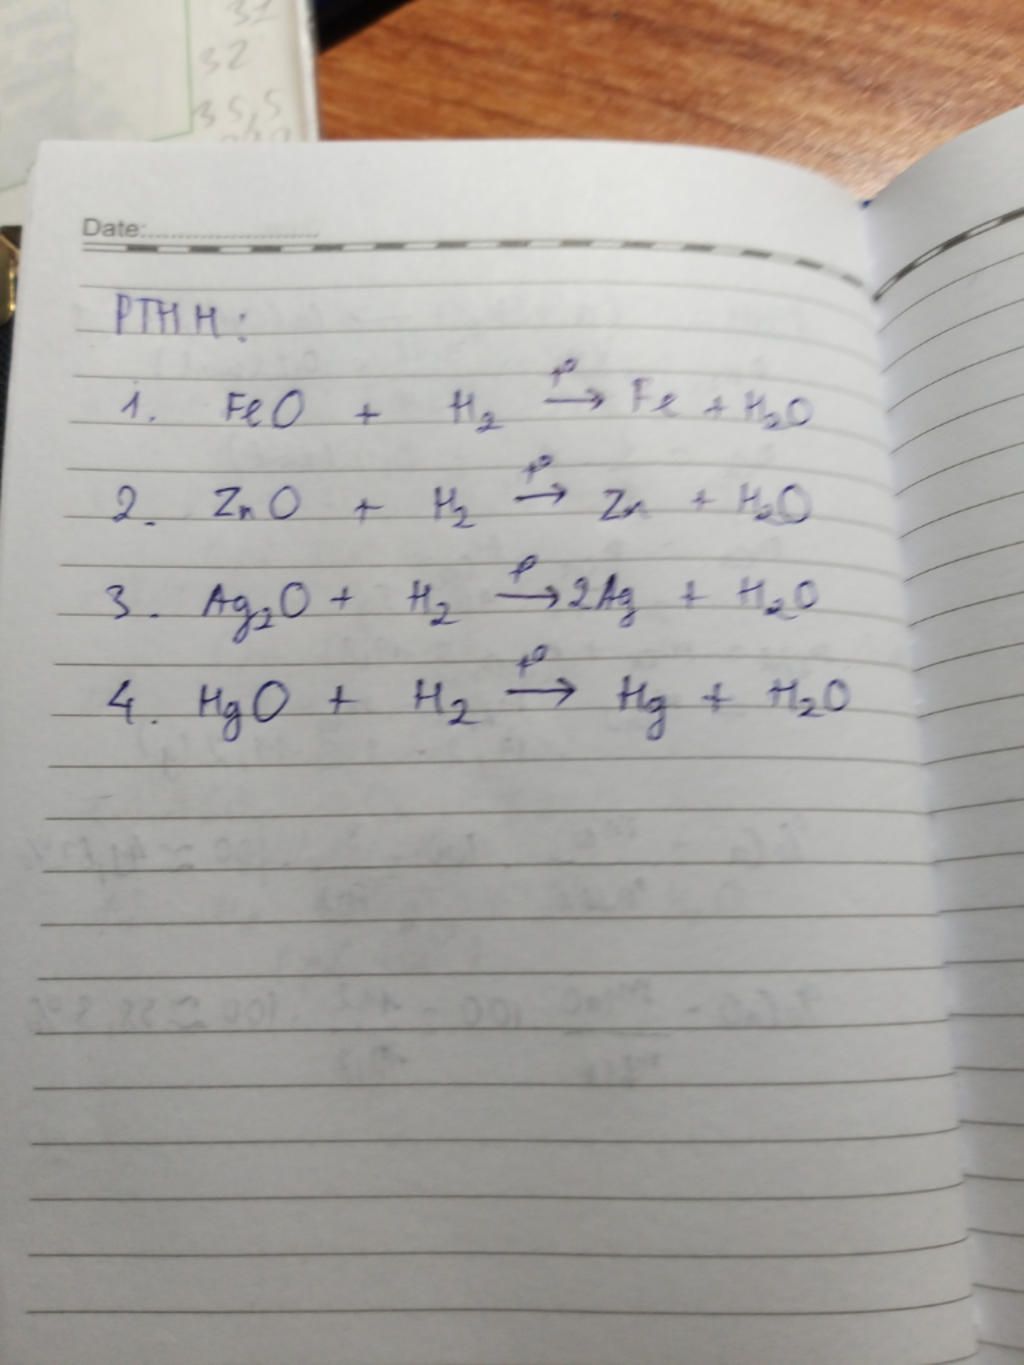 31
32
35,5
Date:
PTHH:
1. FeO + H₂ t⁰→ Fe + H₂O
2. ZnO + H₂ t⁰→ Zn + H₂O
3. Ag₂O + H₂ t⁰→ 2Ag + H₂O
4. HgO + H₂ t⁰→ Hg + H₂O